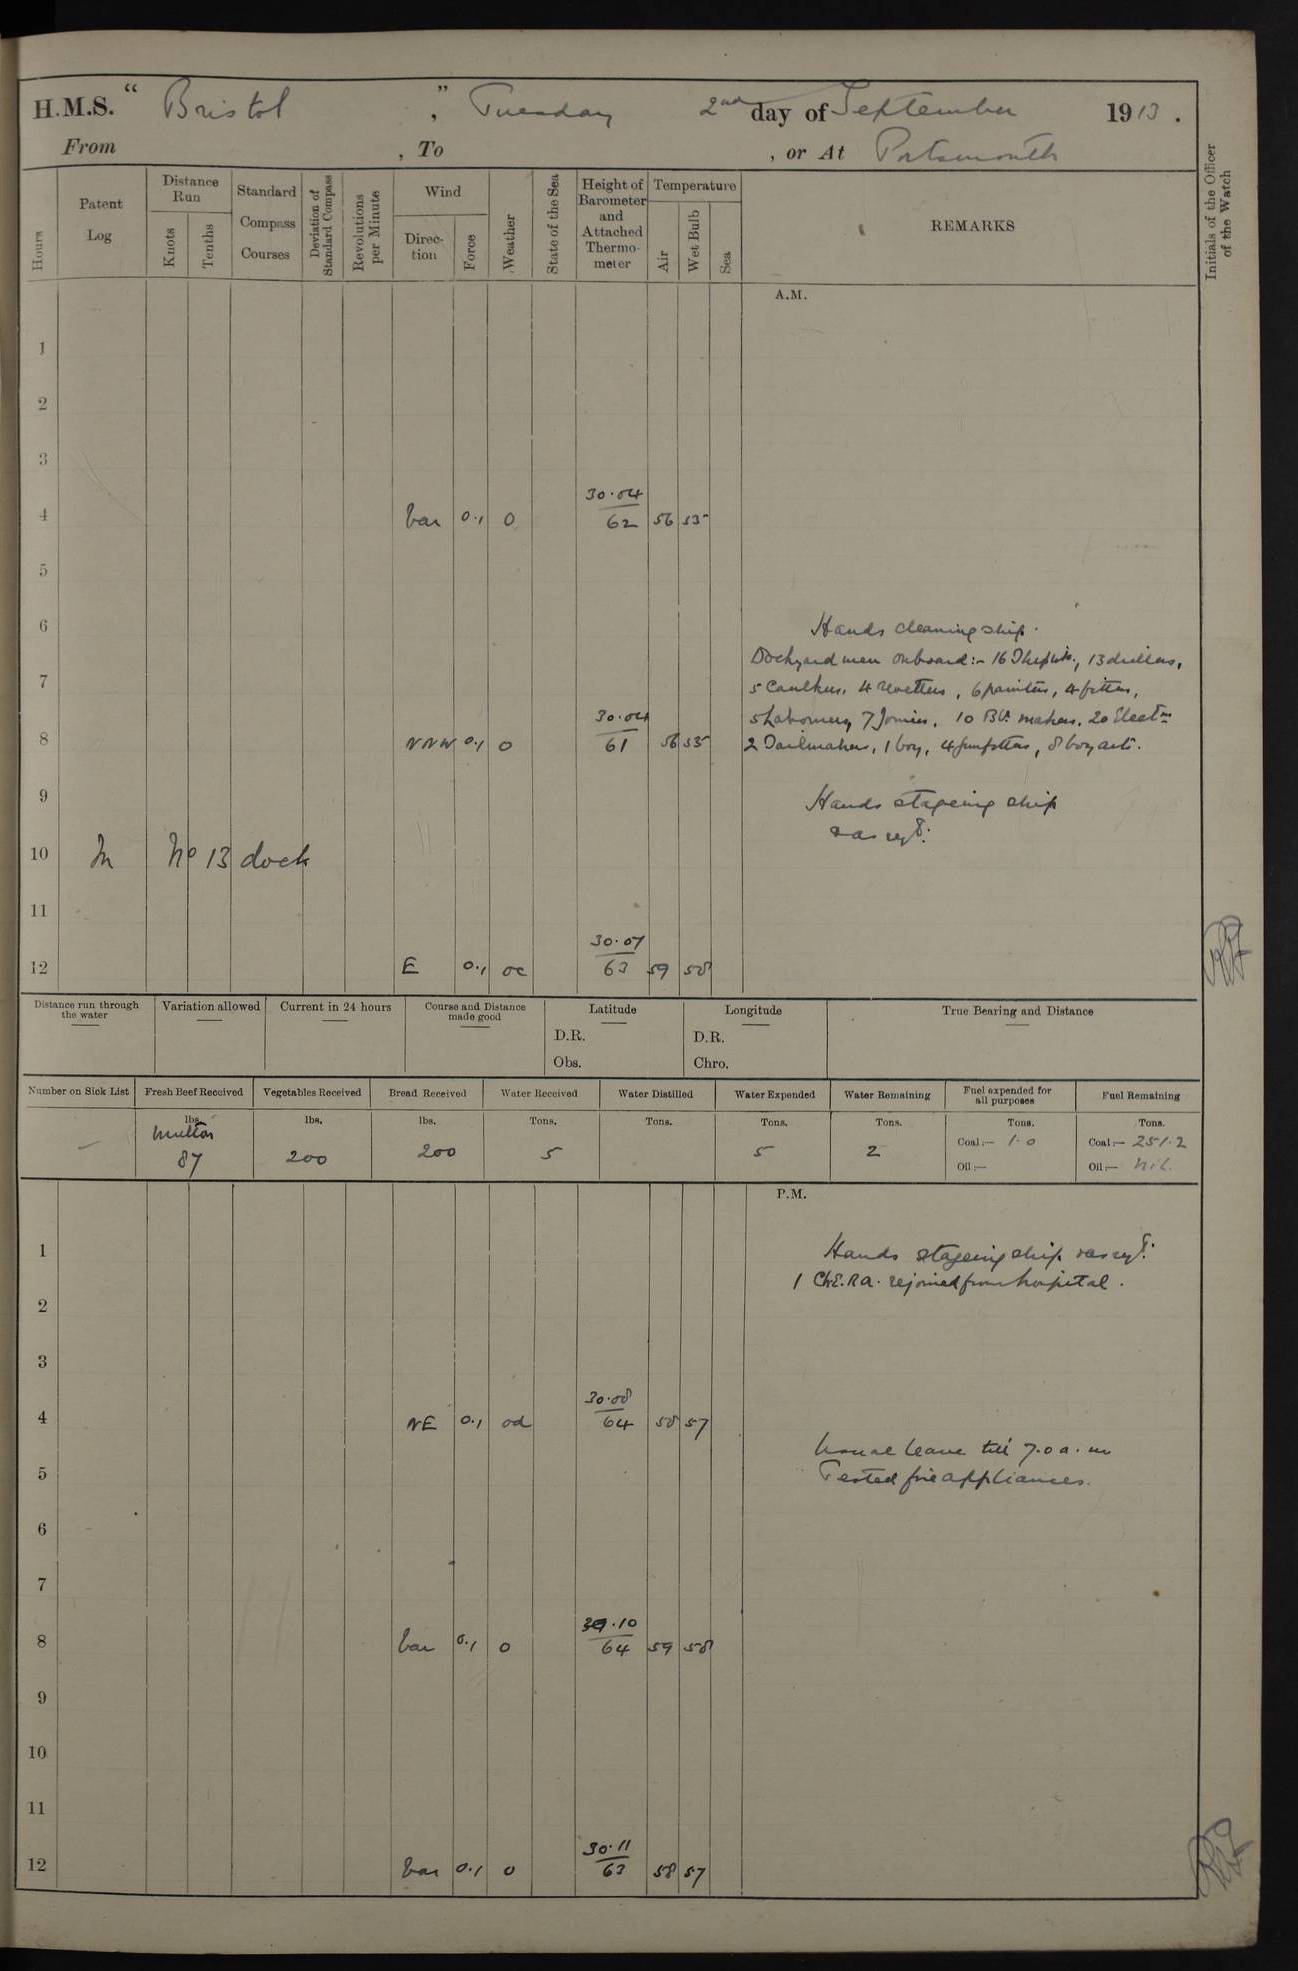 H.M.S. “ Bristol ” , Tuesday 2nd day of September 1913 .
From , To , or At Portsmouth
Hours
Patent Log
Distance Run
Knots
Tenths
Standard Compass Courses
Deviation of Standard Compass
Revolutions per Minute
Wind
Direction
Force
Weather
State of the Sea
Height of Barometer and Attached Thermometer
Temperature
Air
Wet Bulb
Sea
REMARKS
Initials of the Officer of the Watch
A.M.
1
2
3
30.04
4 var 0.1 o 62 56 55
5
6 Hands cleaning ship.
Dockyard men onboard:- 16 Shipwts., 13 drillers,
7 5 Caulkers, 4 rivetters, 6 painters, 4 fitters,
30.04 5 Labourers, 7 Joiners, 10 Blr. makers, 20 Electrns
8 NNW 0.1 o 61 56 55 2 Sailmakers, 1 boy, 4 gunfitters, 8 boy arts.
9 Hands stageing ship
as reqd.
10 In No 13 dock
11
30.07
12 E 0.1 oc 63 59 58
Distance run through the water
Variation allowed
Current in 24 hours
Course and Distance made good
Latitude
D.R.
Obs.
Longitude
D.R.
Chro.
True Bearing and Distance
Number on Sick List Fresh Beef Received Vegetables Received Bread Received Water Received Water Distilled Water Expended Water Remaining Fuel expended for all purposes Fuel Remaining
lbs. lbs. lbs. Tons. Tons. Tons. Tons. Tons. Tons.
Mutton Coal:— 1.0 Coal:— 251.2
— 87 200 200 5 5 2 Oil:— Oil:— Nil.
P.M.
1 Hands stageing ship as reqd.
1 Ch.E.R.A. rejoined from hospital.
2
3
30.08
4 NE 0.1 od 64 58 57
Usual leave till 7.0 a.m
5 Tested fire appliances.
6
7
30.10
8 var 0.1 o 64 59 58
9
10
11
30.11
12 var 0.1 o 63 58 57